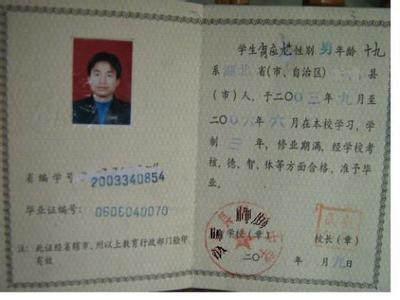 省编学号 2003340854
毕业证编号: 0606040070
注: 此证经省辖市、州以上教育行政部门验印
有效
学生 性别 男 年龄 十九
系 湖北 省(市、自治区) 县
(市)人, 于二〇〇三年九月至
二〇〇六年六月在本校学习, 学
制 三 年, 修业期满, 经学校考
核, 德、智、体等方面合格, 准予毕
业。
学校(章) 校长(章)
二〇 年 月 日